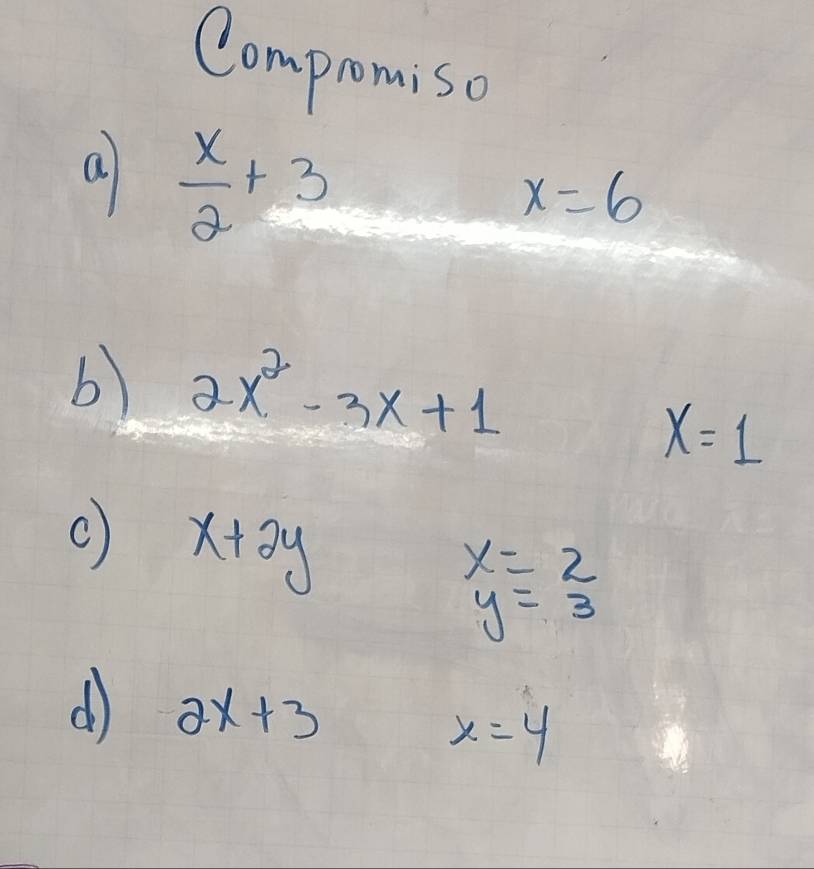 Compromiso
a) x/2 + 3 x = 6
b) 2x² - 3x + 1 x = 1
c) x + 2y x = 2
y = 3
d) 2x + 3 x = 4